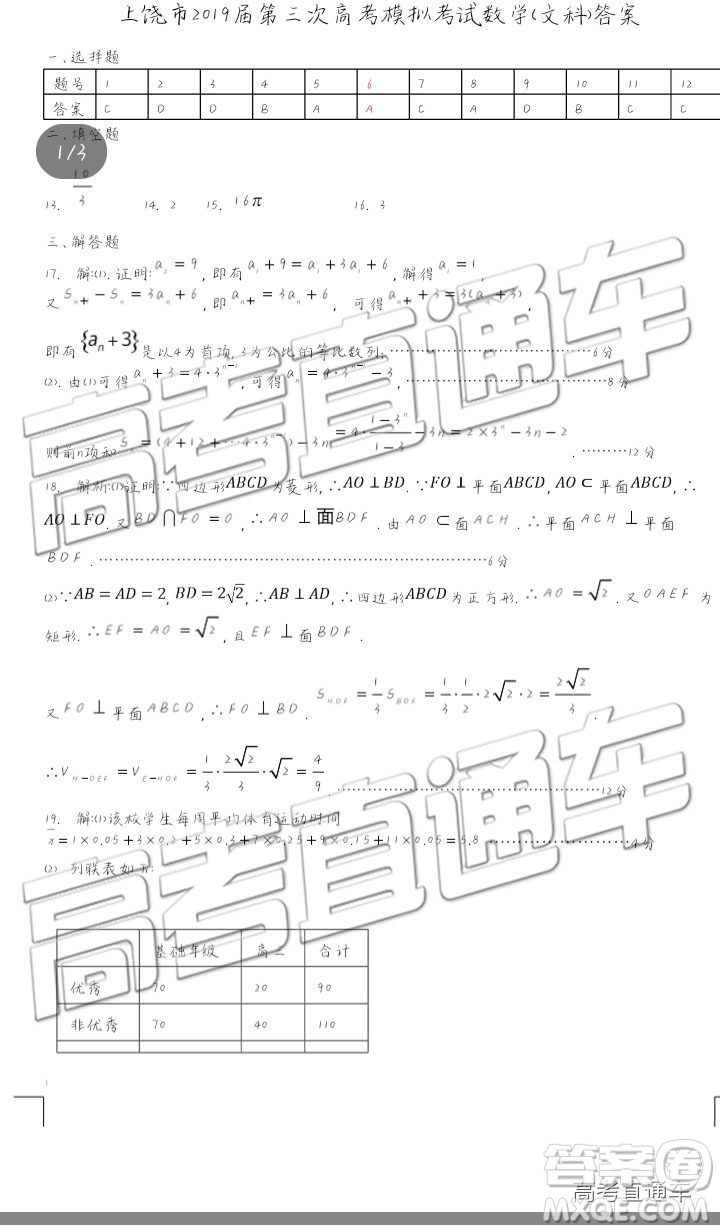 上饶市2019届第三次高考模拟考试数学(文科)答案
一、选择题
题号 1 2 3 4 5 6 7 8 9 10 11 12
答案 C D D B A A C A D B C C
二、填空题
1/3
13. 10/3 14. 2 15. 16π 16. 3
三、解答题
17. 解:(1).证明:a₂=9,即有a₁+9=a₁+3a₁+6,解得a₁=1,
又Sₙ₊-Sₙ=3aₙ+6,即aₙ₊=3aₙ+6, 可得aₙ₊+3=3(aₙ+3),
即有{aₙ+3}是以4为首项,3为公比的等比数列;……………………6分
(2).由(1)可得aₙ+3=4·3ⁿ⁻,可得aₙ=4·3ⁿ⁻-3,……………………8分
则前n项和Sₙ=(4+12+…4·3ⁿ⁻)-3n=4·(1-3ⁿ)/(1-3)-3n=2×3ⁿ-3n-2 .………12分
18. 解析:(1)证明:∵四边形ABCD为菱形,∴AO⊥BD.∵FO⊥平面ABCD,AO⊂平面ABCD,∴
AO⊥FO.又BD∩FO=O,∴AO⊥面BDF.由AO⊂面ACH.∴平面ACH⊥平面
BDF.……………………………………6分
(2)∵AB=AD=2,BD=2√2,∴AB⊥AD,∴四边形ABCD为正方形.∴AO=√2.又OAEF为
矩形.∴EF=AO=√2,且EF⊥面BDF.
又FO⊥平面ABCD,∴FO⊥BD.S_HDF=1/3 S_BDF=1/3·1/2·2√2·2=2√2/3.
∴V_H-DEF=V_E-HDF=1/3·2√2/3·√2=4/9.……………………12分
19. 解:(1)该校学生每周平均体育运动时间
x̄=1×0.05+3×0.2+5×0.3+7×0.25+9×0.15+11×0.05=5.8 ……………………4分
(2) 列联表如下:
基础年级 高三 合计
优秀 70 20 90
非优秀 70 40 110
1
高考直通车
高考直通车
答案卷
高考直通车
MXQE.COM